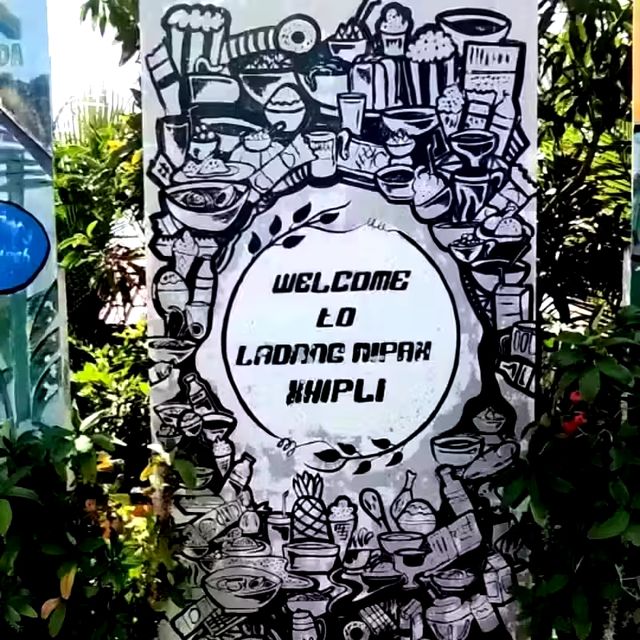 WELCOME
to
LADANG NIPAH
KHIPLI